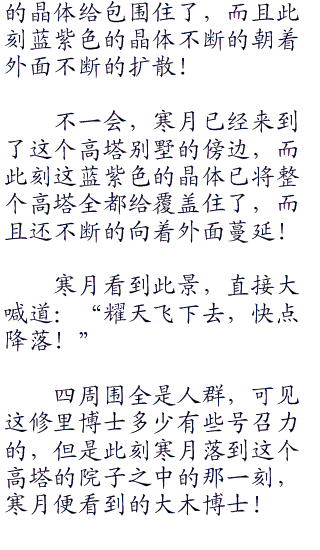 的晶体给包围住了，而且此
刻蓝紫色的晶体不断的朝着
外面不断的扩散！
不一会，寒月已经来到
了这个高塔别墅的傍边，而
此刻这蓝紫色的晶体已将整
个高塔全都给覆盖住了，而
且还不断的向着外面蔓延！
寒月看到此景，直接大
喊道：“耀天飞下去，快点
降落！”
四周围全是人群，可见
这修里博士多少有些号召力
的，但是此刻寒月落到这个
高塔的院子之中的那一刻，
寒月便看到的大木博士！